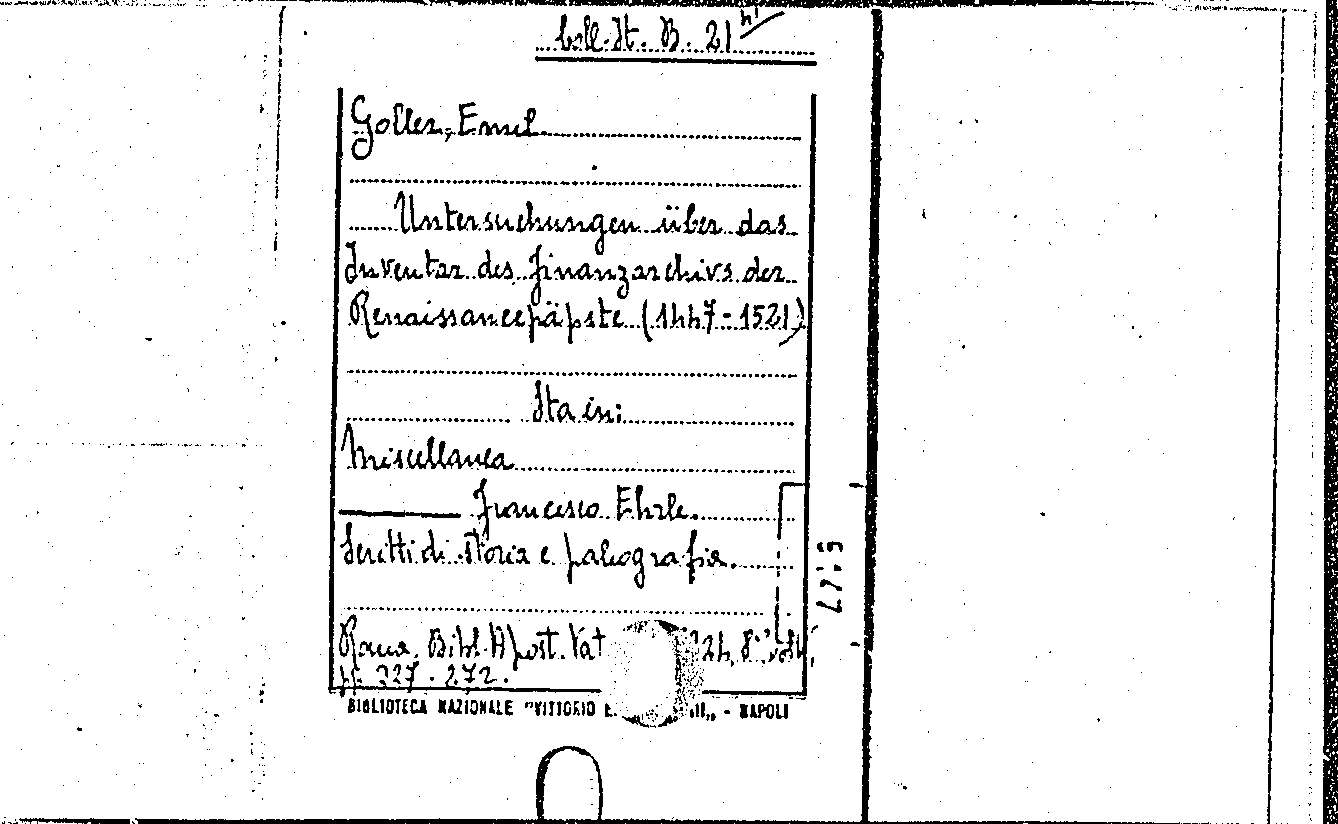 Coll. It. B. 21
Goller, Emil
Untersuchungen über das
Inventar des Finanzarchivs der
Renaissancepäpste (1447-1521)
Sta in:
Miscellanea
Francesco Ehrle.
Scritti di storia e paleografia.
Roma, Bibl. Apost. Vat 24, 8°
pp. 227-272.
BIBLIOTECA NAZIONALE "VITTORIO E III„ - NAPOLI